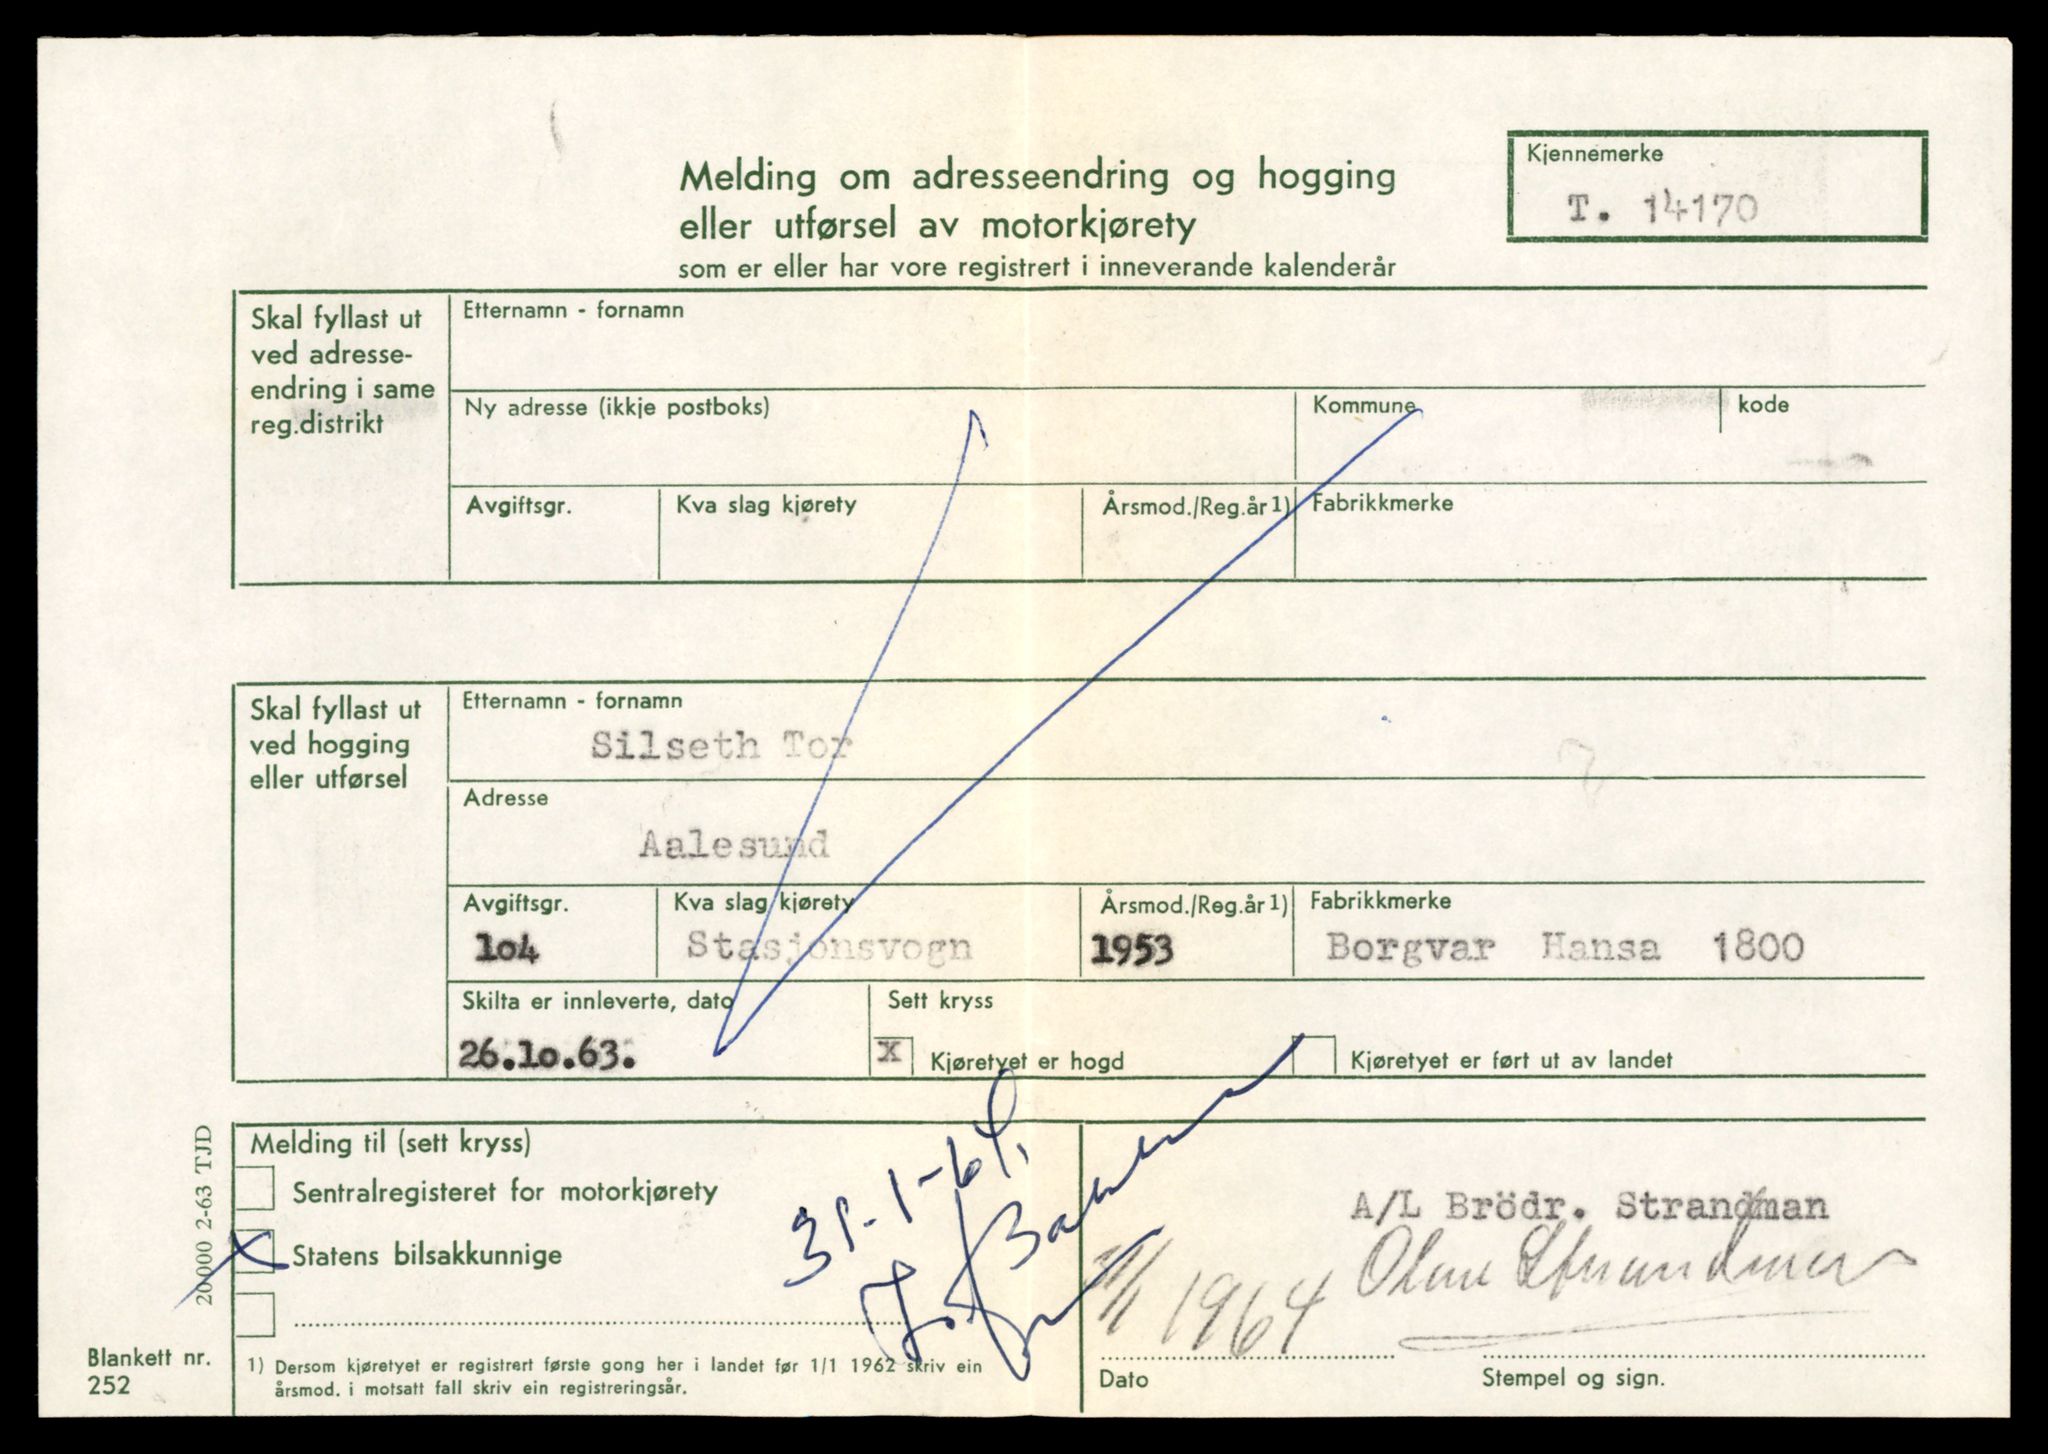 Melding om adresseendring og hogging
eller utførsel av motorkjørety
som er eller har vore registrert i inneverande kalenderår
Kjennemerke
T. 14170
Skal fyllast ut
ved adresse-
endring i same
reg.distrikt
Etternamn - fornamn
Ny adresse (ikkje postboks)
Kommune
kode
Avgiftsgr.
Kva slag kjørety
Årsmod./Reg.år 1)
Fabrikkmerke
Skal fyllast ut
ved hogging
eller utførsel
Etternamn - fornamn
Silseth Tor
Adresse
Aalesund
Avgiftsgr.
Kva slag kjørety
Årsmod./Reg.år 1)
Fabrikkmerke
1o4
Stasjonsvogn
1953
Borgvar Hansa 1800
Skilta er innleverte, dato
Sett kryss
26.1o.63.
X Kjøretyet er hogd
Kjøretyet er ført ut av landet
Melding til (sett kryss)
Sentralregisteret for motorkjørety
X Statens bilsakkunnige
31-1-64.
A/L Brödr. Strandman
1964
Dato
Stempel og sign.
1) Dersom kjøretyet er registrert første gong her i landet før 1/1 1962 skriv ein
årsmod. i motsatt fall skriv ein registreringsår.
Blankett nr.
252
20000 2-63 TJD